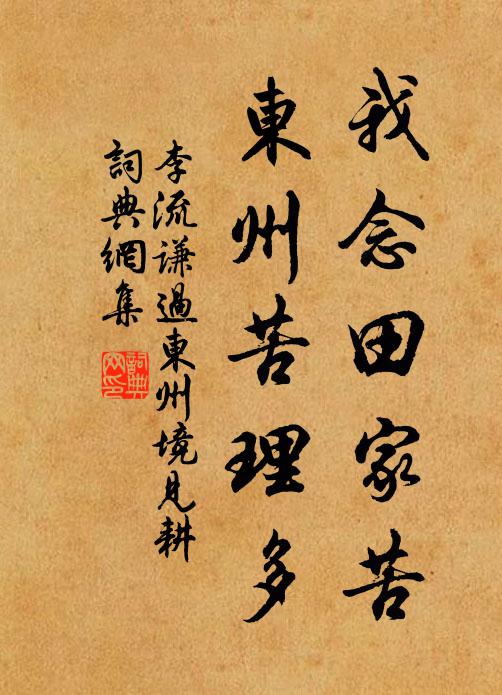 我念田家苦
東州苦理多
李流謙過東州境見耕
詞典網集
詞典網印